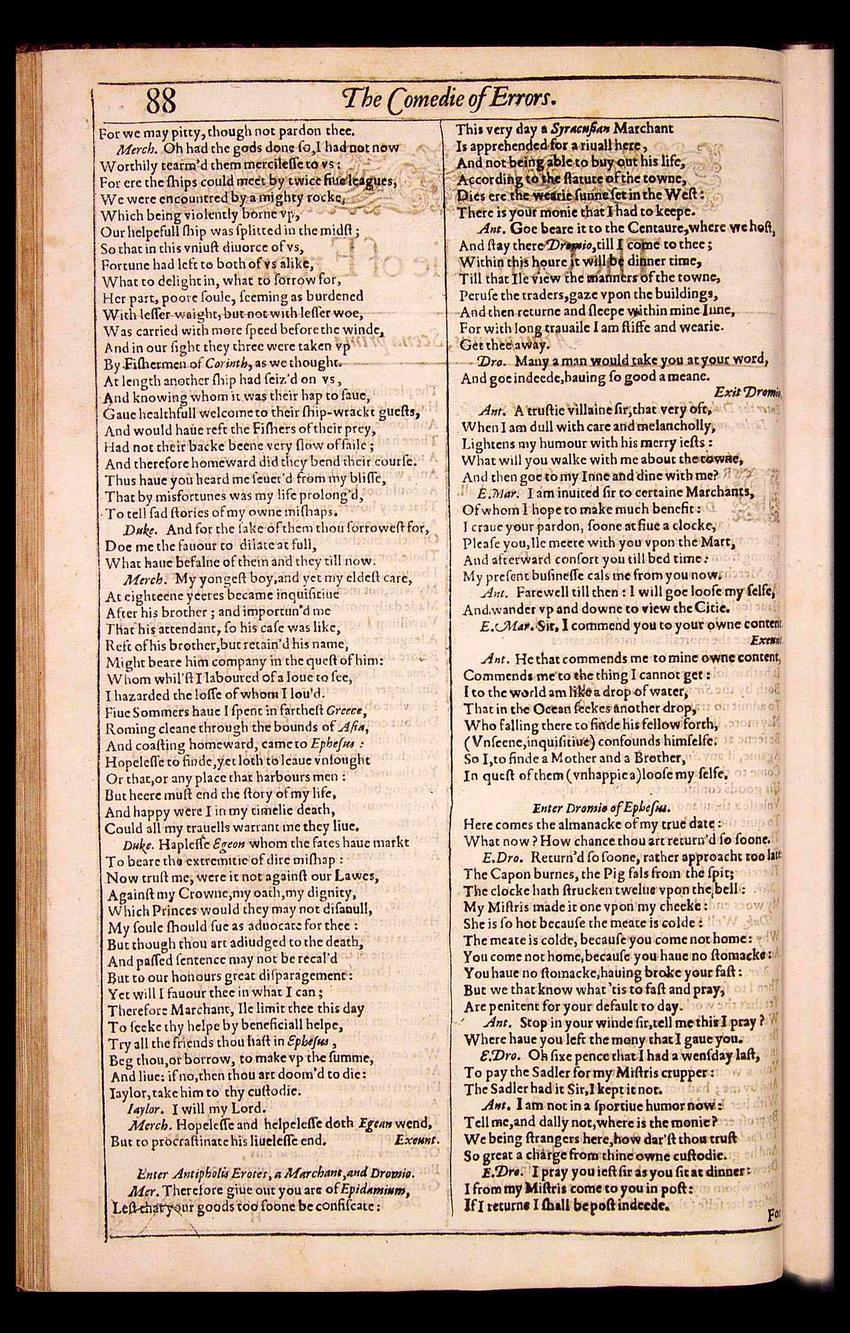 88
The Comedie of Errors.
For we may pitty, though not pardon thee.
Merch. Oh had the gods done ſo, I had not now
Worthily tearm'd them mercileſſe to vs:
For ere the ſhips could meet by twice fiue leagues,
We were encountred by a mighty rocke,
Which being violently borne vp,
Our helpefull ſhip was ſplitted in the midſt;
So that in this vniuſt diuorce of vs,
Fortune had left to both of vs alike,
What to delight in, what to ſorrow for,
Her part, poore ſoule, ſeeming as burdened
With leſſer waight, but not with leſſer woe,
Was carried with more ſpeed before the winde,
And in our ſight they three were taken vp
By Fiſhermen of Corinth, as we thought.
At length another ſhip had ſeiz'd on vs,
And knowing whom it was their hap to ſaue,
Gaue healthfull welcome to their ſhip-wrackt gueſts,
And would haue reft the Fiſhers of their prey,
Had not their backe beene very ſlow of ſaile;
And therefore homeward did they bend their courſe.
Thus haue you heard me ſeuer'd from my bliſſe,
That by misfortunes was my life prolong'd,
To tell ſad ſtories of my owne miſhaps.
Duke. And for the ſake of them thou ſorroweſt for,
Doe me the fauour to dilate at full,
What haue befalne of them and they till now.
Merch. My yongeſt boy, and yet my eldeſt care,
At eighteene yeeres became inquiſitiue
After his brother; and importun'd me
That his attendant, ſo his caſe was like,
Reft of his brother, but retain'd his name,
Might beare him company in the queſt of him:
Whom whil'ſt I laboured of a loue to ſee,
I hazarded the loſſe of whom I lou'd.
Fiue Sommers haue I ſpent in fartheſt Greece,
Roming cleane through the bounds of Aſia,
And coaſting homeward, came to Epheſus:
Hopeleſſe to finde, yet loth to leaue vnſought
Or that, or any place that harbours men:
But heere muſt end the ſtory of my life,
And happy were I in my timelie death,
Could all my trauells warrant me they liue.
Duke. Hapleſſe Egeon whom the fates haue markt
To beare the extremitie of dire miſhap:
Now truſt me, were it not againſt our Lawes,
Againſt my Crowne, my oath, my dignity,
Which Princes would they may not diſanull,
My ſoule ſhould ſue as aduocate for thee:
But though thou art adiudged to the death,
And paſſed ſentence may not be recal'd
But to our honours great diſparagement:
Yet will I fauour thee in what I can;
Therefore Marchant, Ile limit thee this day
To ſeeke thy helpe by beneficiall helpe,
Try all the friends thou haſt in Epheſus,
Beg thou, or borrow, to make vp the ſumme,
And liue: if no, then thou art doom'd to die:
Iaylor, take him to thy cuſtodie.
Iaylor. I will my Lord.
Merch. Hopeleſſe and helpeleſſe doth Egean wend,
But to procraſtinate his liueleſſe end. Exeunt.
Enter Antipholis Erotes, a Marchant, and Dromio.
Mer. Therefore giue out you are of Epidamium,
Leſt that your goods too ſoone be confiſcate:
This very day a Syracuſian Marchant
Is apprehended for a riuall here,
And not being able to buy out his life,
According to the ſtatute of the towne,
Dies ere the wearie ſunne ſet in the Weſt:
There is your monie that I had to keepe.
Ant. Goe beare it to the Centaure, where we hoſt,
And ſtay there Dromio, till I come to thee;
Within this houre it will be dinner time,
Till that Ile view the manners of the towne,
Peruſe the traders, gaze vpon the buildings,
And then returne and ſleepe within mine Inne,
For with long trauaile I am ſtiffe and wearie.
Get thee away.
Dro. Many a man would take you at your word,
And goe indeede, hauing ſo good a meane.
Exit Dromio
Ant. A truſtie villaine ſir, that very oft,
When I am dull with care and melancholly,
Lightens my humour with his merry ieſts:
What will you walke with me about the towne,
And then goe to my Inne and dine with me?
E.Mar. I am inuited ſir to certaine Marchants,
Of whom I hope to make much benefit:
I craue your pardon, ſoone at fiue a clocke,
Pleaſe you, Ile meete with you vpon the Mart,
And afterward conſort you till bed time:
My preſent buſineſſe cals me from you now.
Ant. Farewell till then: I will goe looſe my ſelfe,
And wander vp and downe to view the Citie.
E.Mar. Sir, I commend you to your owne content
Exeunt
Ant. He that commends me to mine owne content,
Commends me to the thing I cannot get:
I to the world am like a drop of water,
That in the Ocean ſeekes another drop,
Who falling there to finde his fellow forth,
(Vnſeene, inquiſitiue) confounds himſelfe.
So I, to finde a Mother and a Brother,
In queſt of them (vnhappie a) looſe my ſelfe.
Enter Dromio of Epheſus.
Here comes the almanacke of my true date:
What now? How chance thou art return'd ſo ſoone.
E.Dro. Return'd ſo ſoone, rather approacht too late
The Capon burnes, the Pig fals from the ſpit;
The clocke hath ſtrucken twelue vpon the bell:
My Miſtris made it one vpon my cheeke:
She is ſo hot becauſe the meate is colde:
The meate is colde, becauſe you come not home:
You come not home, becauſe you haue no ſtomacke:
You haue no ſtomacke, hauing broke your faſt:
But we that know what 'tis to faſt and pray,
Are penitent for your default to day.
Ant. Stop in your winde ſir, tell me this I pray?
Where haue you left the mony that I gaue you.
E.Dro. Oh ſixe pence that I had a wenſday laſt,
To pay the Sadler for my Miſtris crupper:
The Sadler had it Sir, I kept it not.
Ant. I am not in a ſportiue humor now:
Tell me, and dally not, where is the monie?
We being ſtrangers here, how dar'ſt thou truſt
So great a charge from thine owne cuſtodie.
E.Dro. I pray you ieſt ſir as you ſit at dinner:
I from my Miſtris come to you in poſt:
If I returne I ſhall be poſt indeede.
For